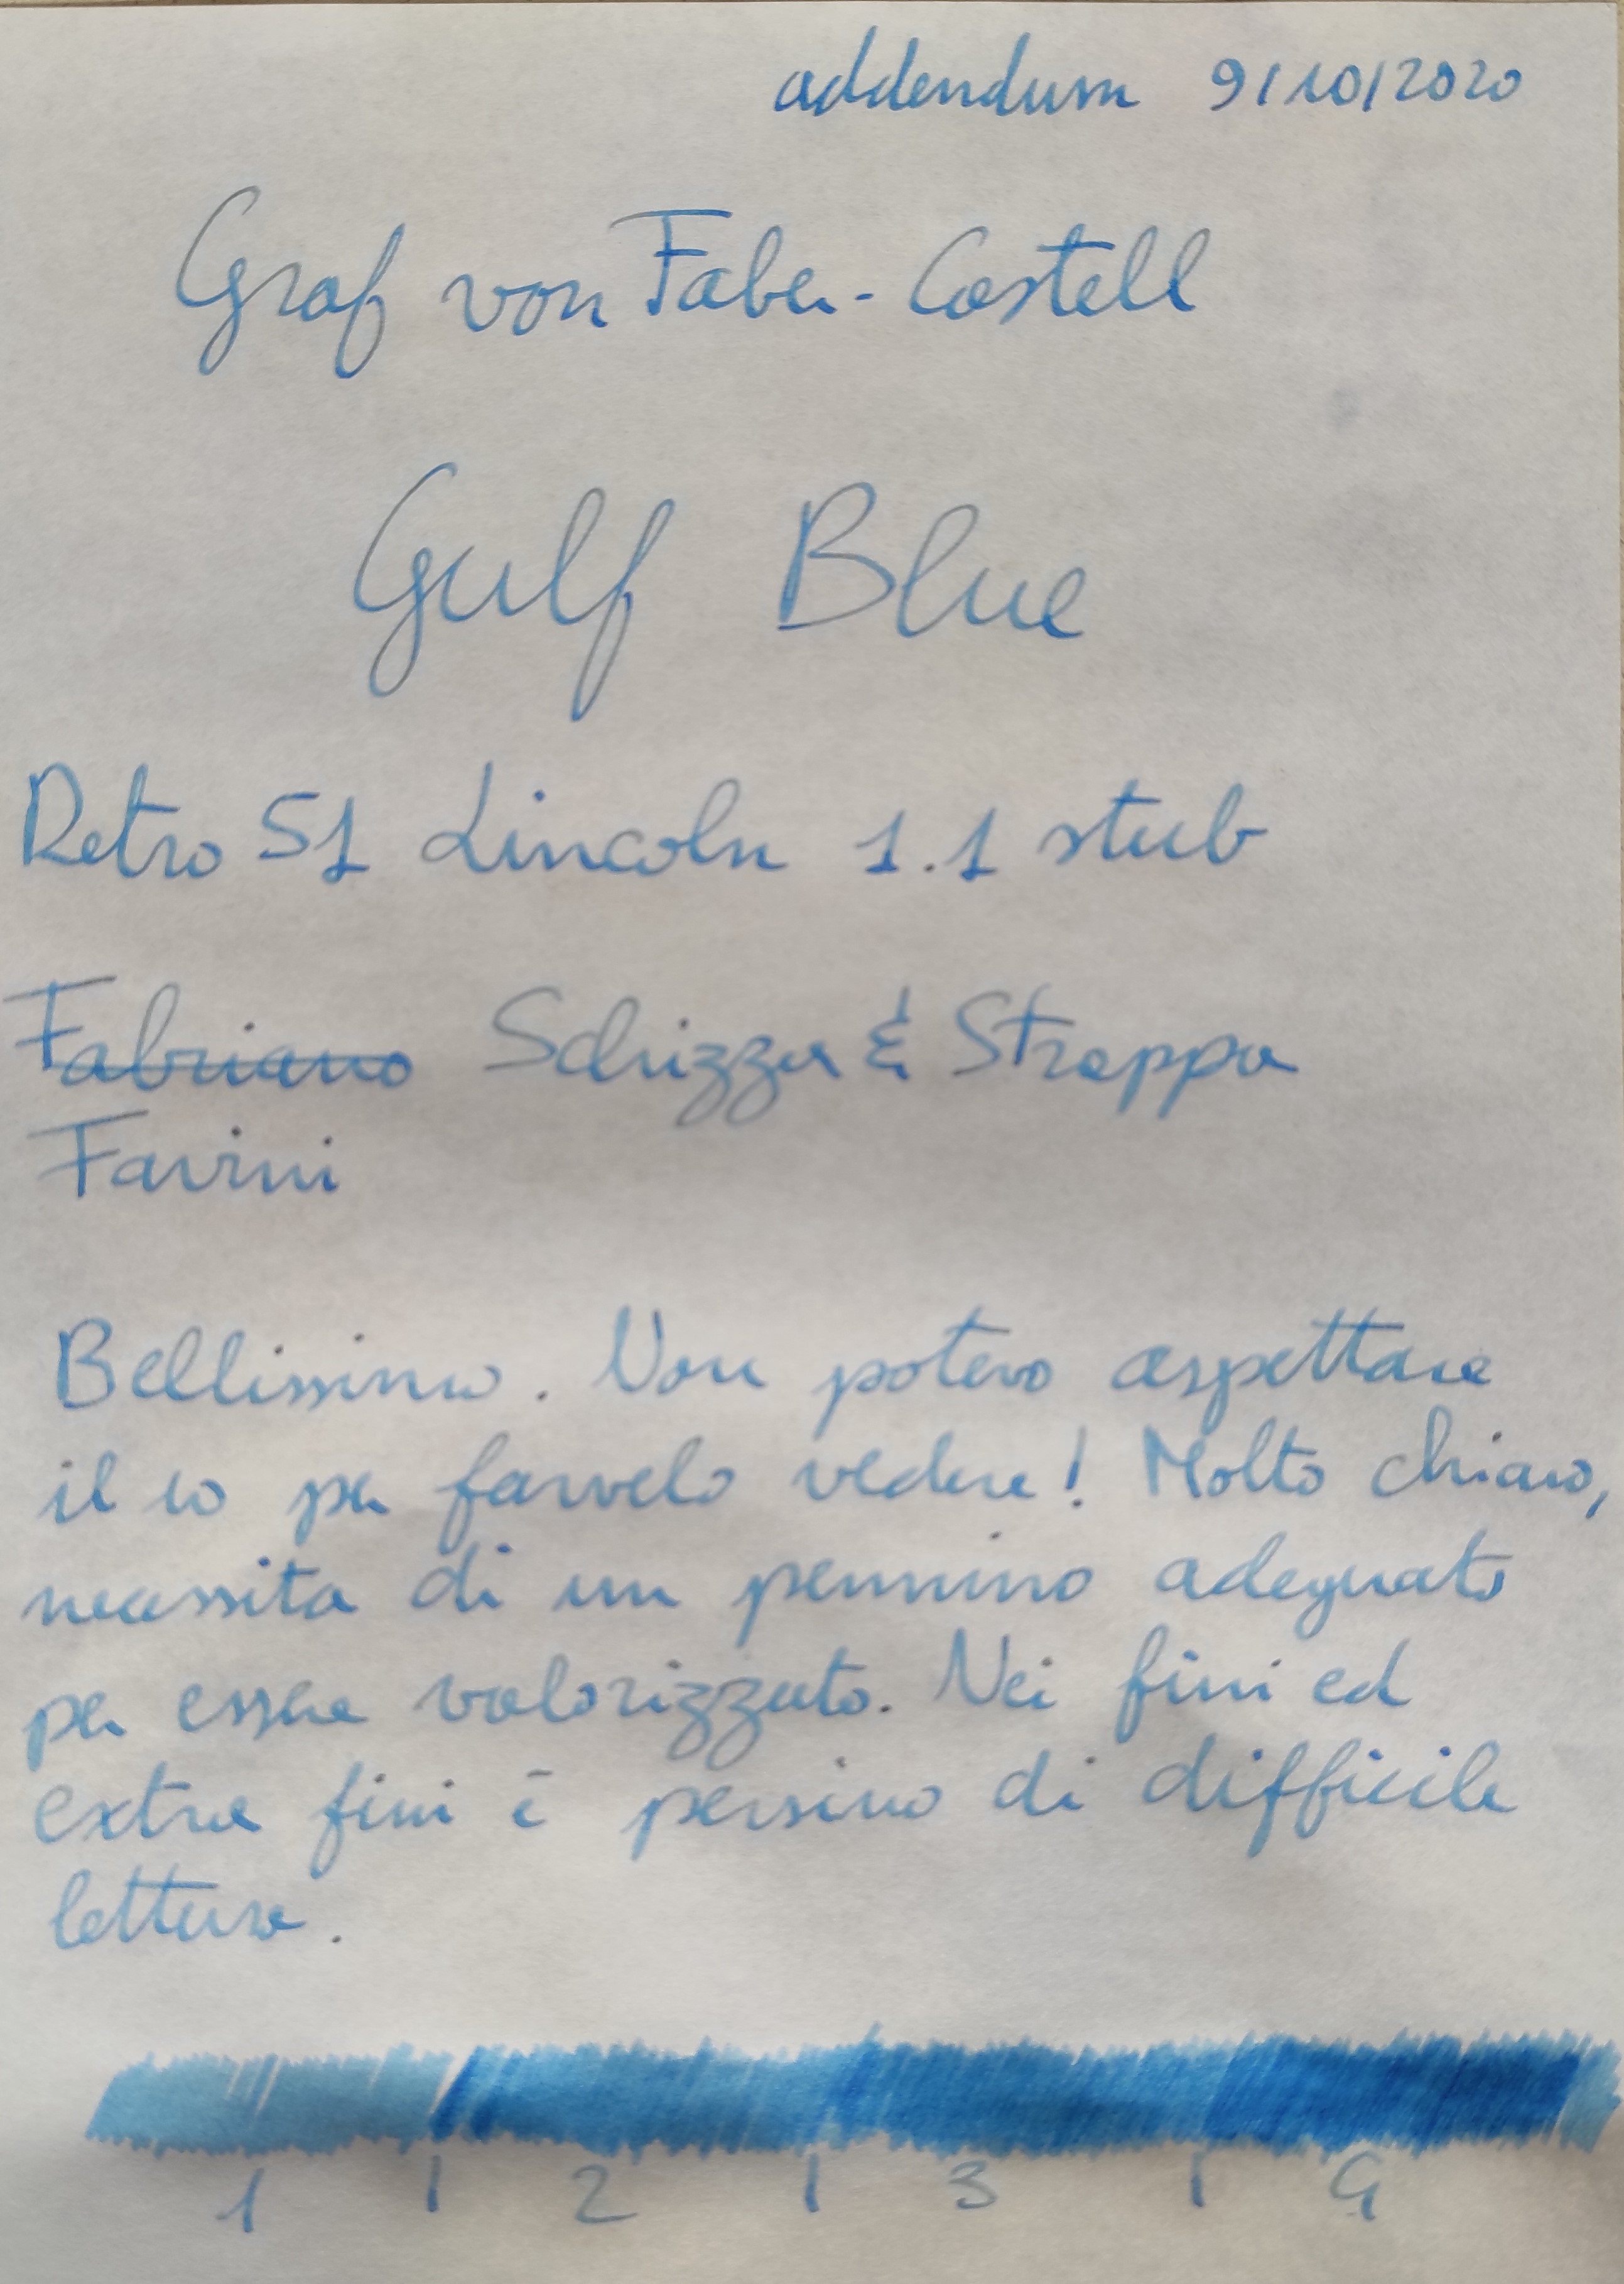 addendum 9/10/2020
Graf von Faber-Castell
Gulf Blue
Retro 51 Lincoln 1.1 stub
Fabriano Schizza & Strappa
Favini
Bellissimo. Non potevo aspettare
il 10 per farvelo vedere! Molto chiaro,
necessita di un pennino adeguato
per essere valorizzato. Nei fini ed
extra fini è persino di difficile
lettura.
1 | 2 | 3 | 4